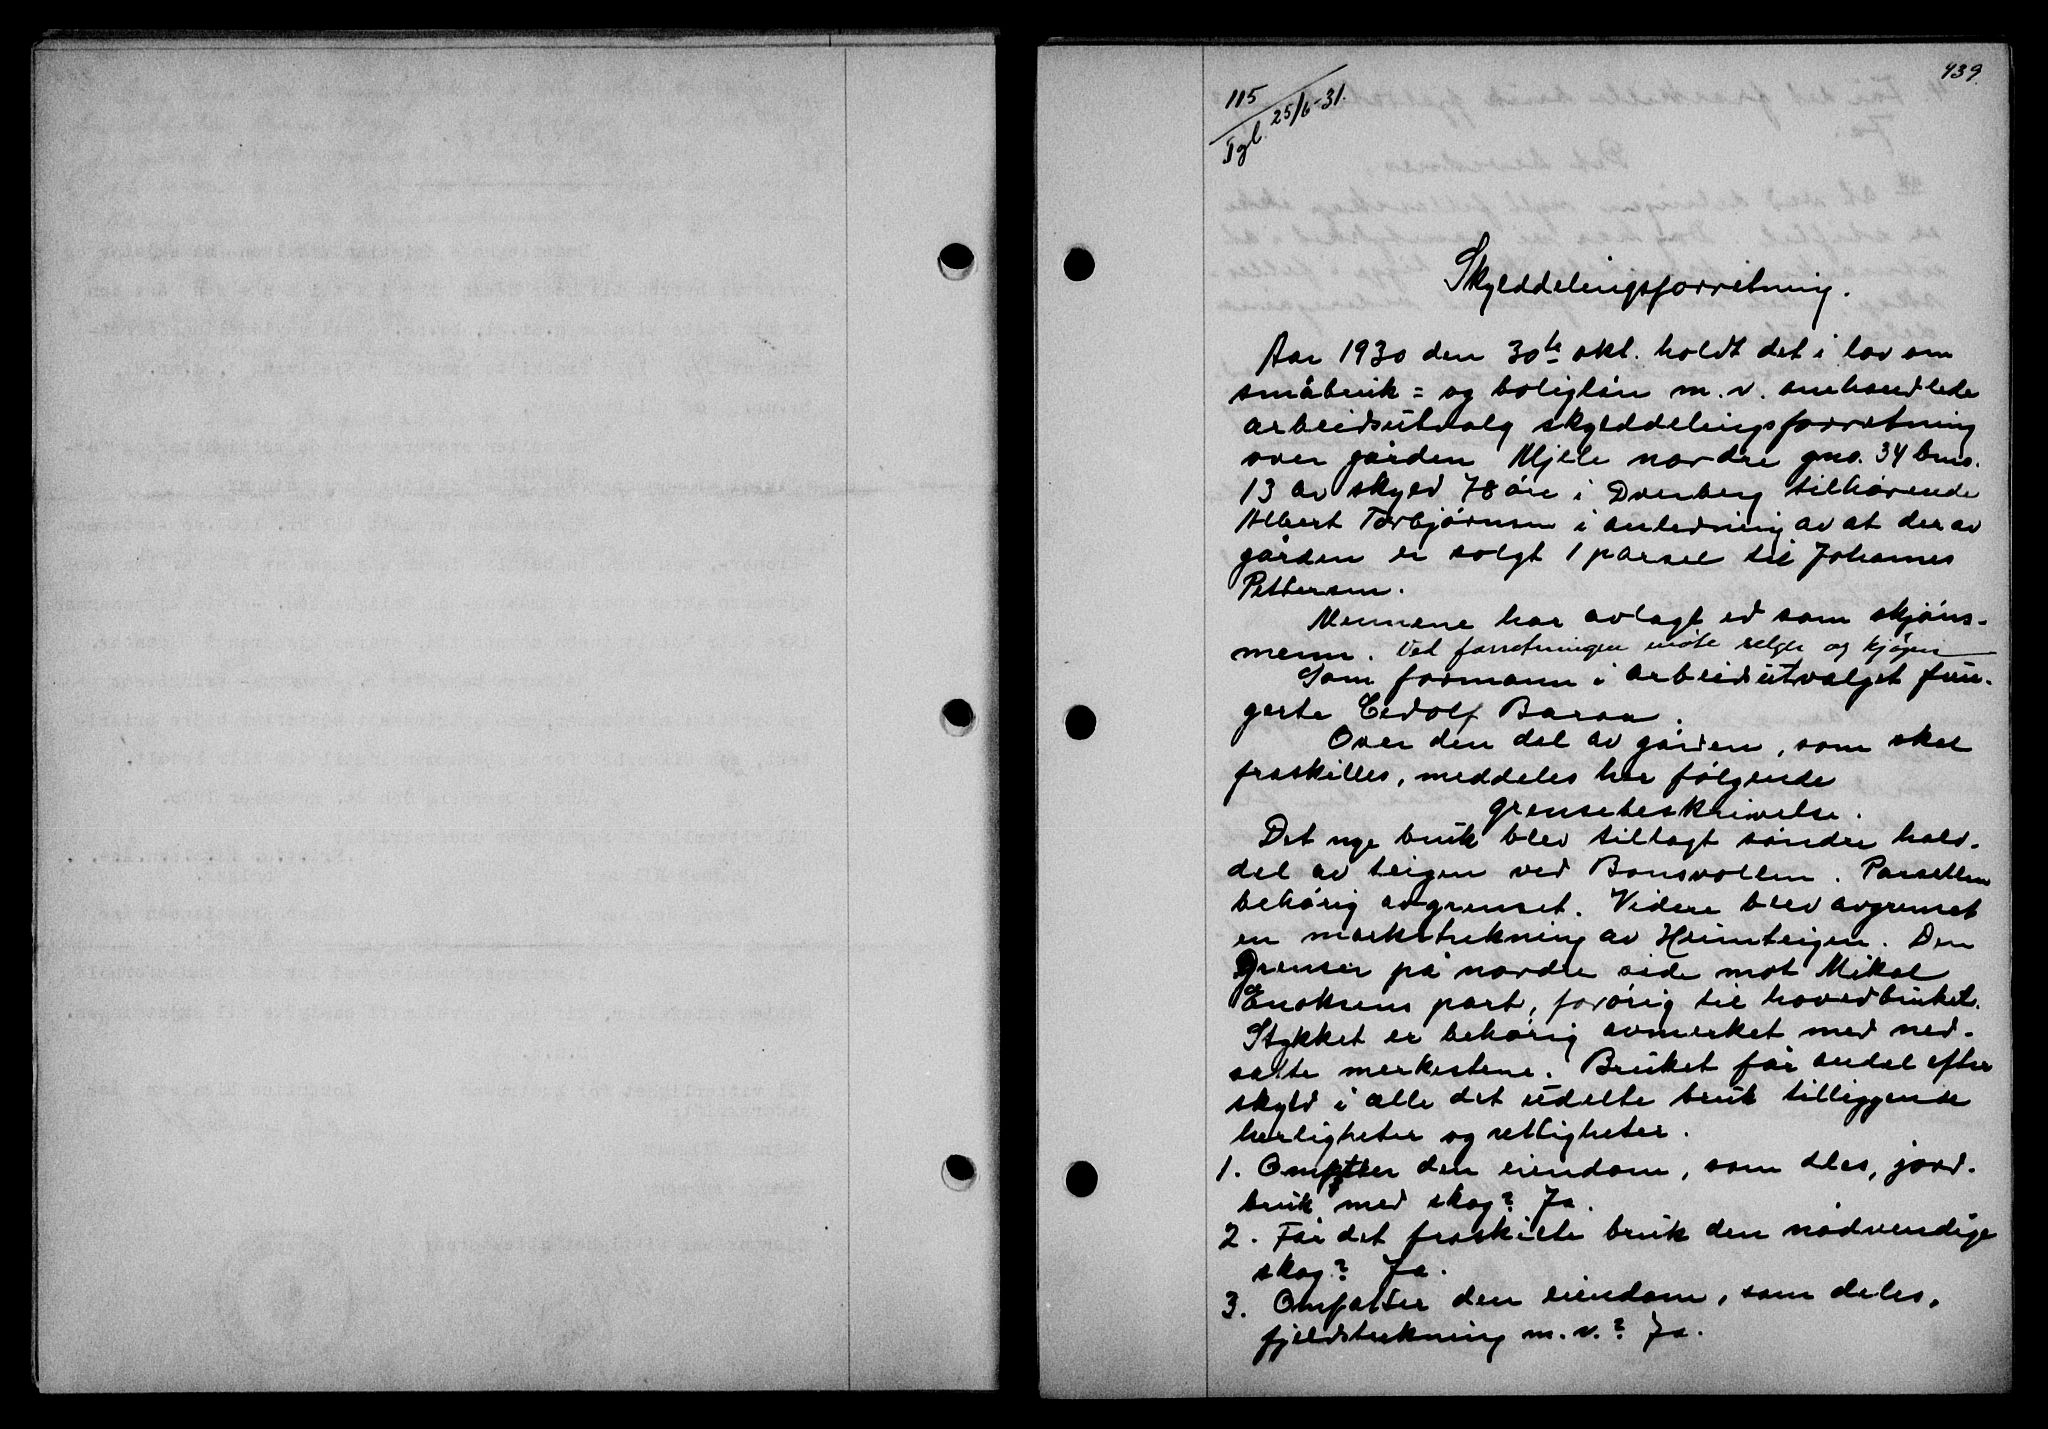 439
115
Tgl. 25/6-31.
Skylddelingsforretning.
Aar 1930 den 30te okt. holdt det i lov om
småbruk= og boliglån m.v. omhandlede
arbeidsutvalg skylddelingsforretning
over gården Mjele nordre gno. 34 bno.
13 av skyld 78 øre i Dverberg tilhørende
Albert Torbjørnsen i anledning av at der av
gården er solgt 1 parsel til Johannes
Pettersen.
Mennene har avlagt ed som skjøns-
menn. Ved forretningen møtte selger og kjøper
Som formann i arbeidsutvalget fun-
gerte Eidolf Baraa.
Over den del av gården, som skal
fraskilles, meddeles her følgende
grensebeskrivelse.
Det nye bruk blev tillagt søndre halv-
del av teigen ved Bonsvollen. Parsellen
behørig avgrenset. Videre blev avgrenset
en markstrekning av Heimteigen. Den
Grenser på nordre side mot Mikal
Enoksens part, forøvrig til hovedbruket.
Stykket er behørig avmerket med ned-
satte merkestene. Bruket får andel efter
skyld i alle det udelte bruk tilliggende
herligheter og rettigheter.
1. Omfatter den eiendom, som deles, jord-
bruk med skog? Ja.
2. Får det fraskilte bruk den nødvendige
skog? Ja.
3. Omfatter den eiendom, som deles,
fjeldstrekning m.v.? Ja.